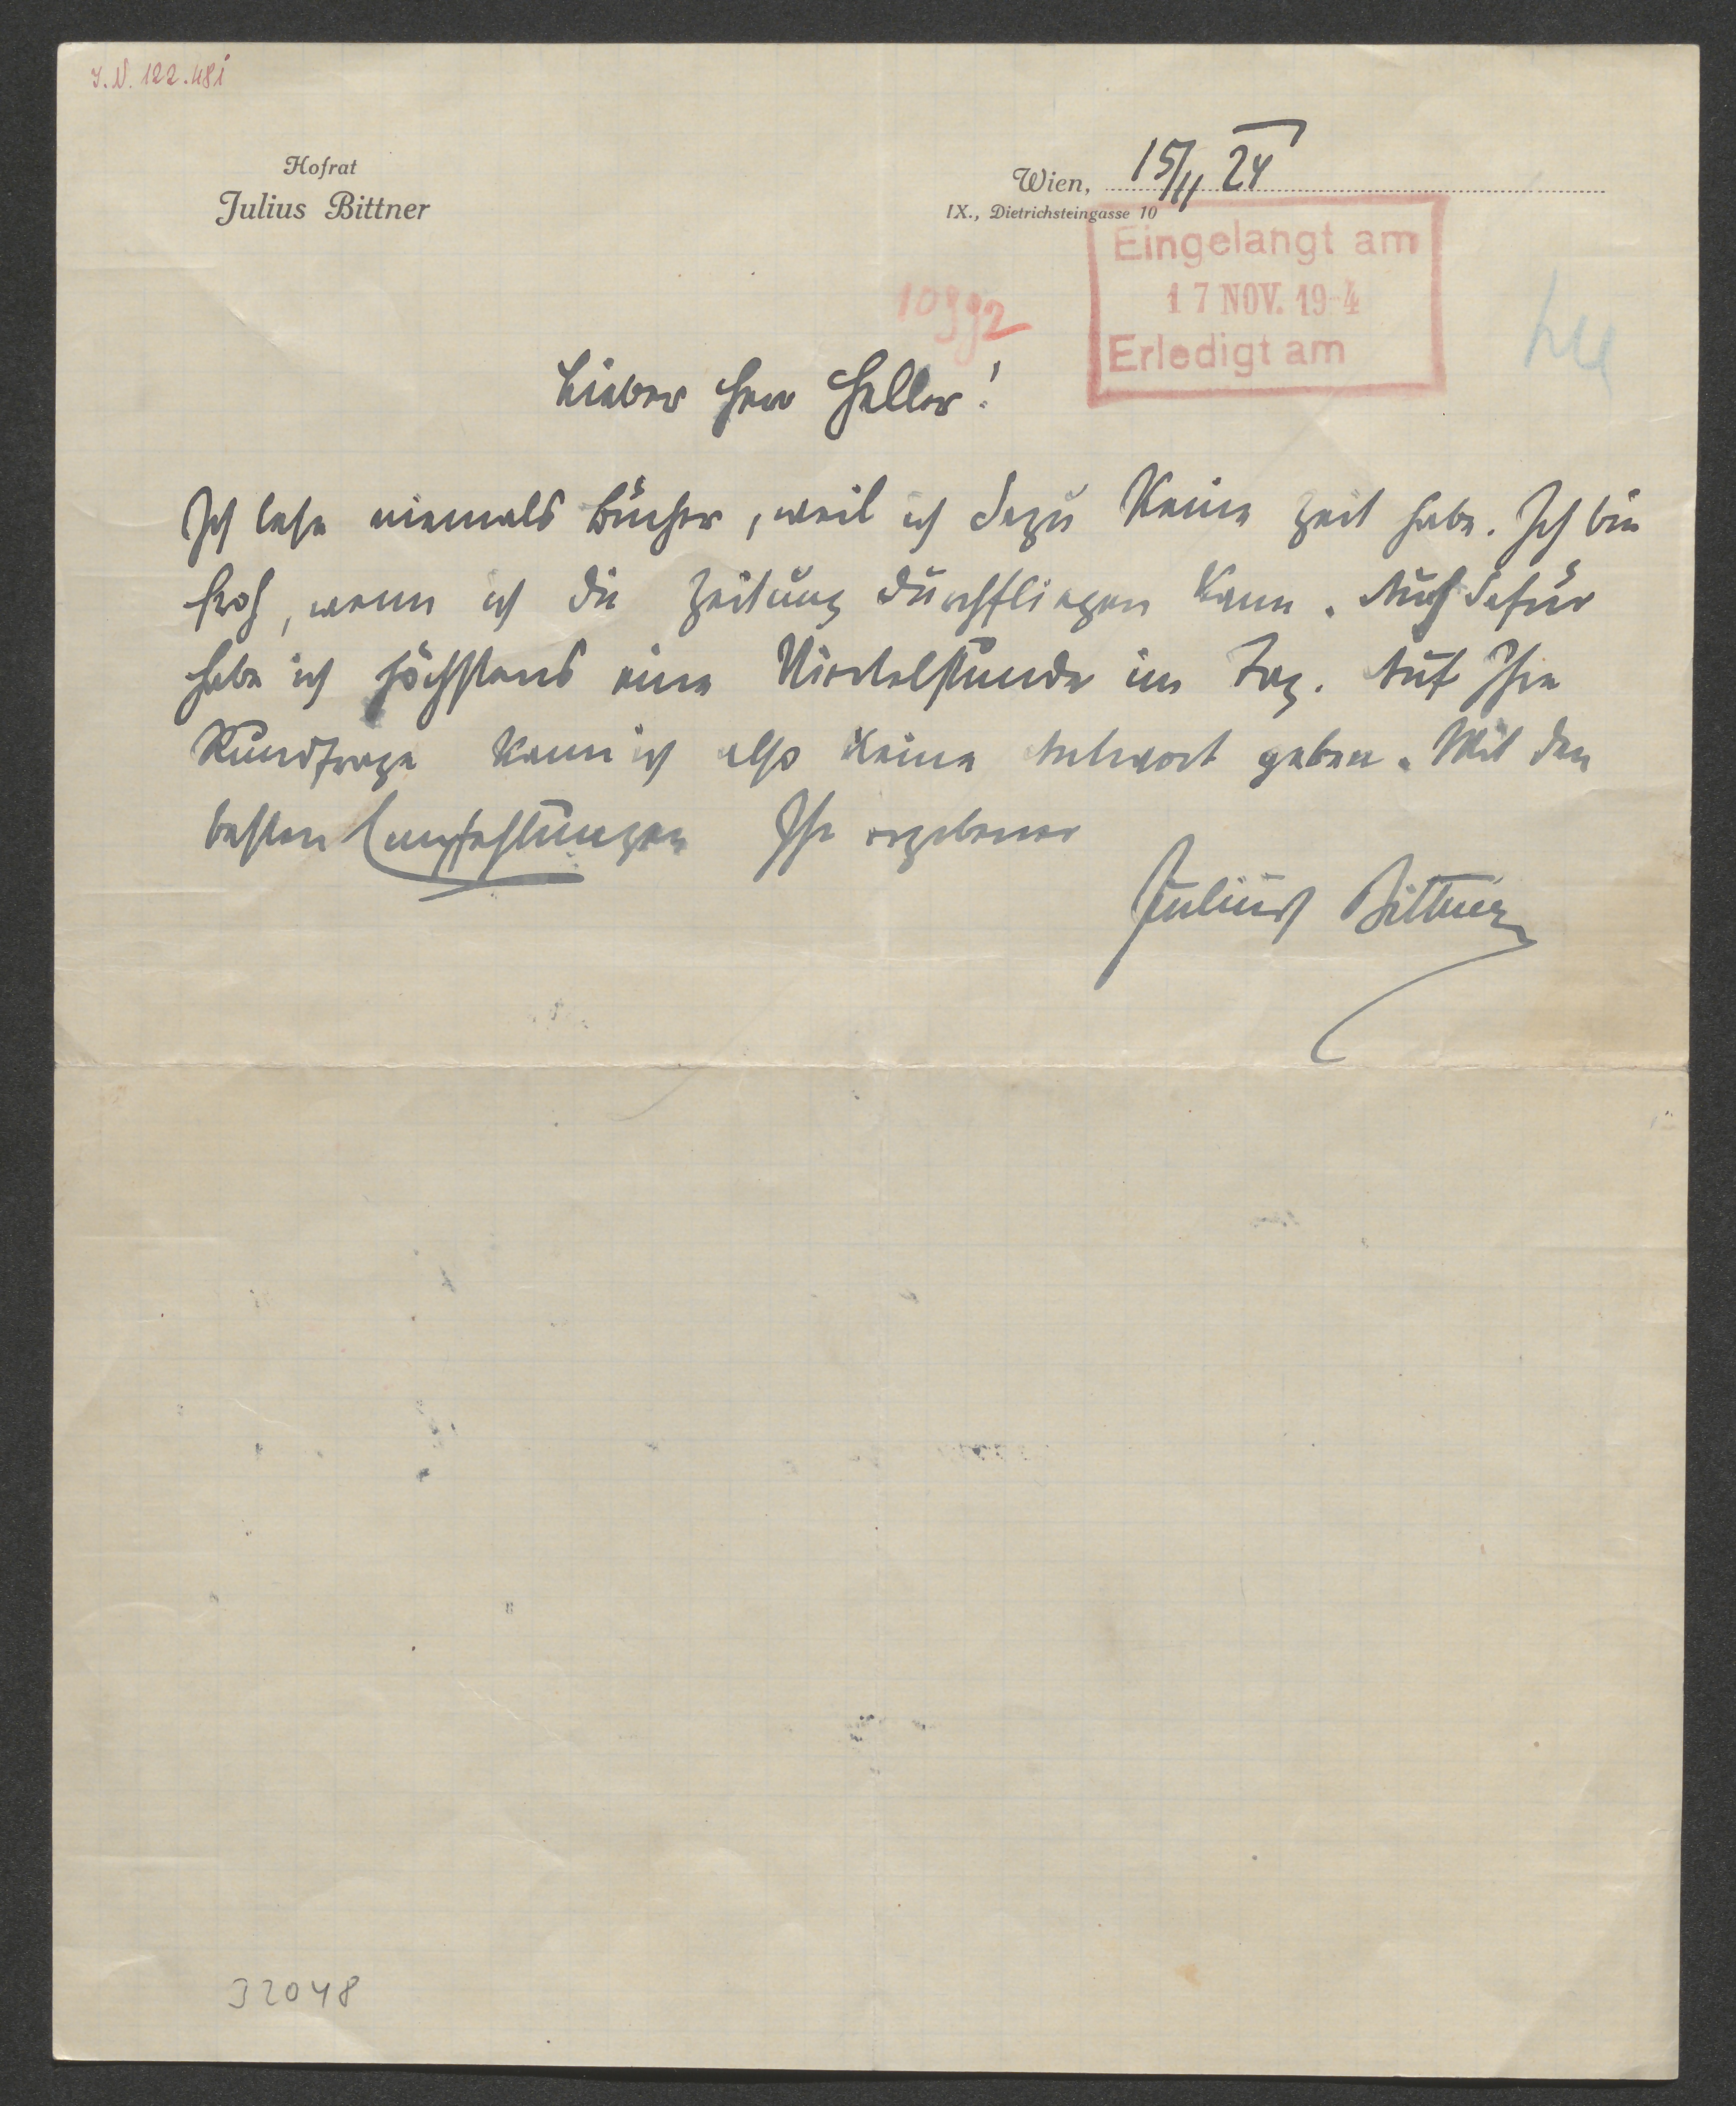 I.N. 122.481
Hofrat
Julius Bittner
Wien, 15/11 24
IX., Dietrichsteingasse 10
Eingelangt am
17 NOV. 19 4
Erledigt am
Lieber Herr Heller!
Ich lese niemals Bücher, weil ich dazu keine Zeit habe. Ich bin
froh, wenn ich die Zeitung durchfliegen kann. Auch dafür
habe ich höchstens eine Viertelstunde im Tag. Auf Ihre
Rundfrage kann ich also keine Antwort geben. Mit den
besten Empfehlungen Ihr ergebener
Julius Bittner
32048